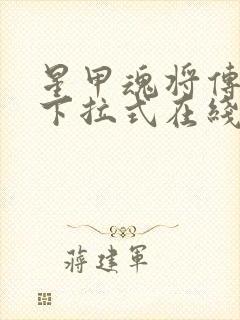 星甲魂将傳
下拉式在綫
蔣建軍